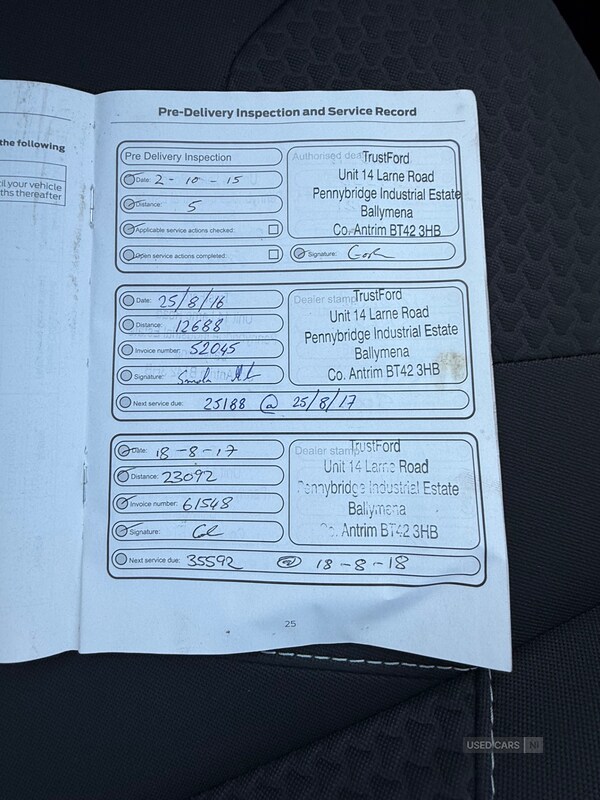 the following
til your vehicle
ths thereafter
Pre-Delivery Inspection and Service Record
Pre Delivery Inspection
Date: 2 - 10 - 15
Distance: 5
Applicable service actions checked:
Open service actions completed:
Authorised dea
TrustFord
Unit 14 Larne Road
Pennybridge Industrial Estate
Ballymena
Co. Antrim BT42 3HB
Signature:
Date: 25/8/16
Distance: 12688
Invoice number: 52045
Signature:
Dealer stamp
TrustFord
Unit 14 Larne Road
Pennybridge Industrial Estate
Ballymena
Co. Antrim BT42 3HB
Next service due: 25188 @ 25/8/17
Date: 18-8-17
Distance: 23092
Invoice number: 61548
Signature:
Dealer stamp
TrustFord
Unit 14 Larne Road
Pennybridge Industrial Estate
Ballymena
Co. Antrim BT42 3HB
Next service due: 35592 @ 18-8-18
25
USED CARS NI